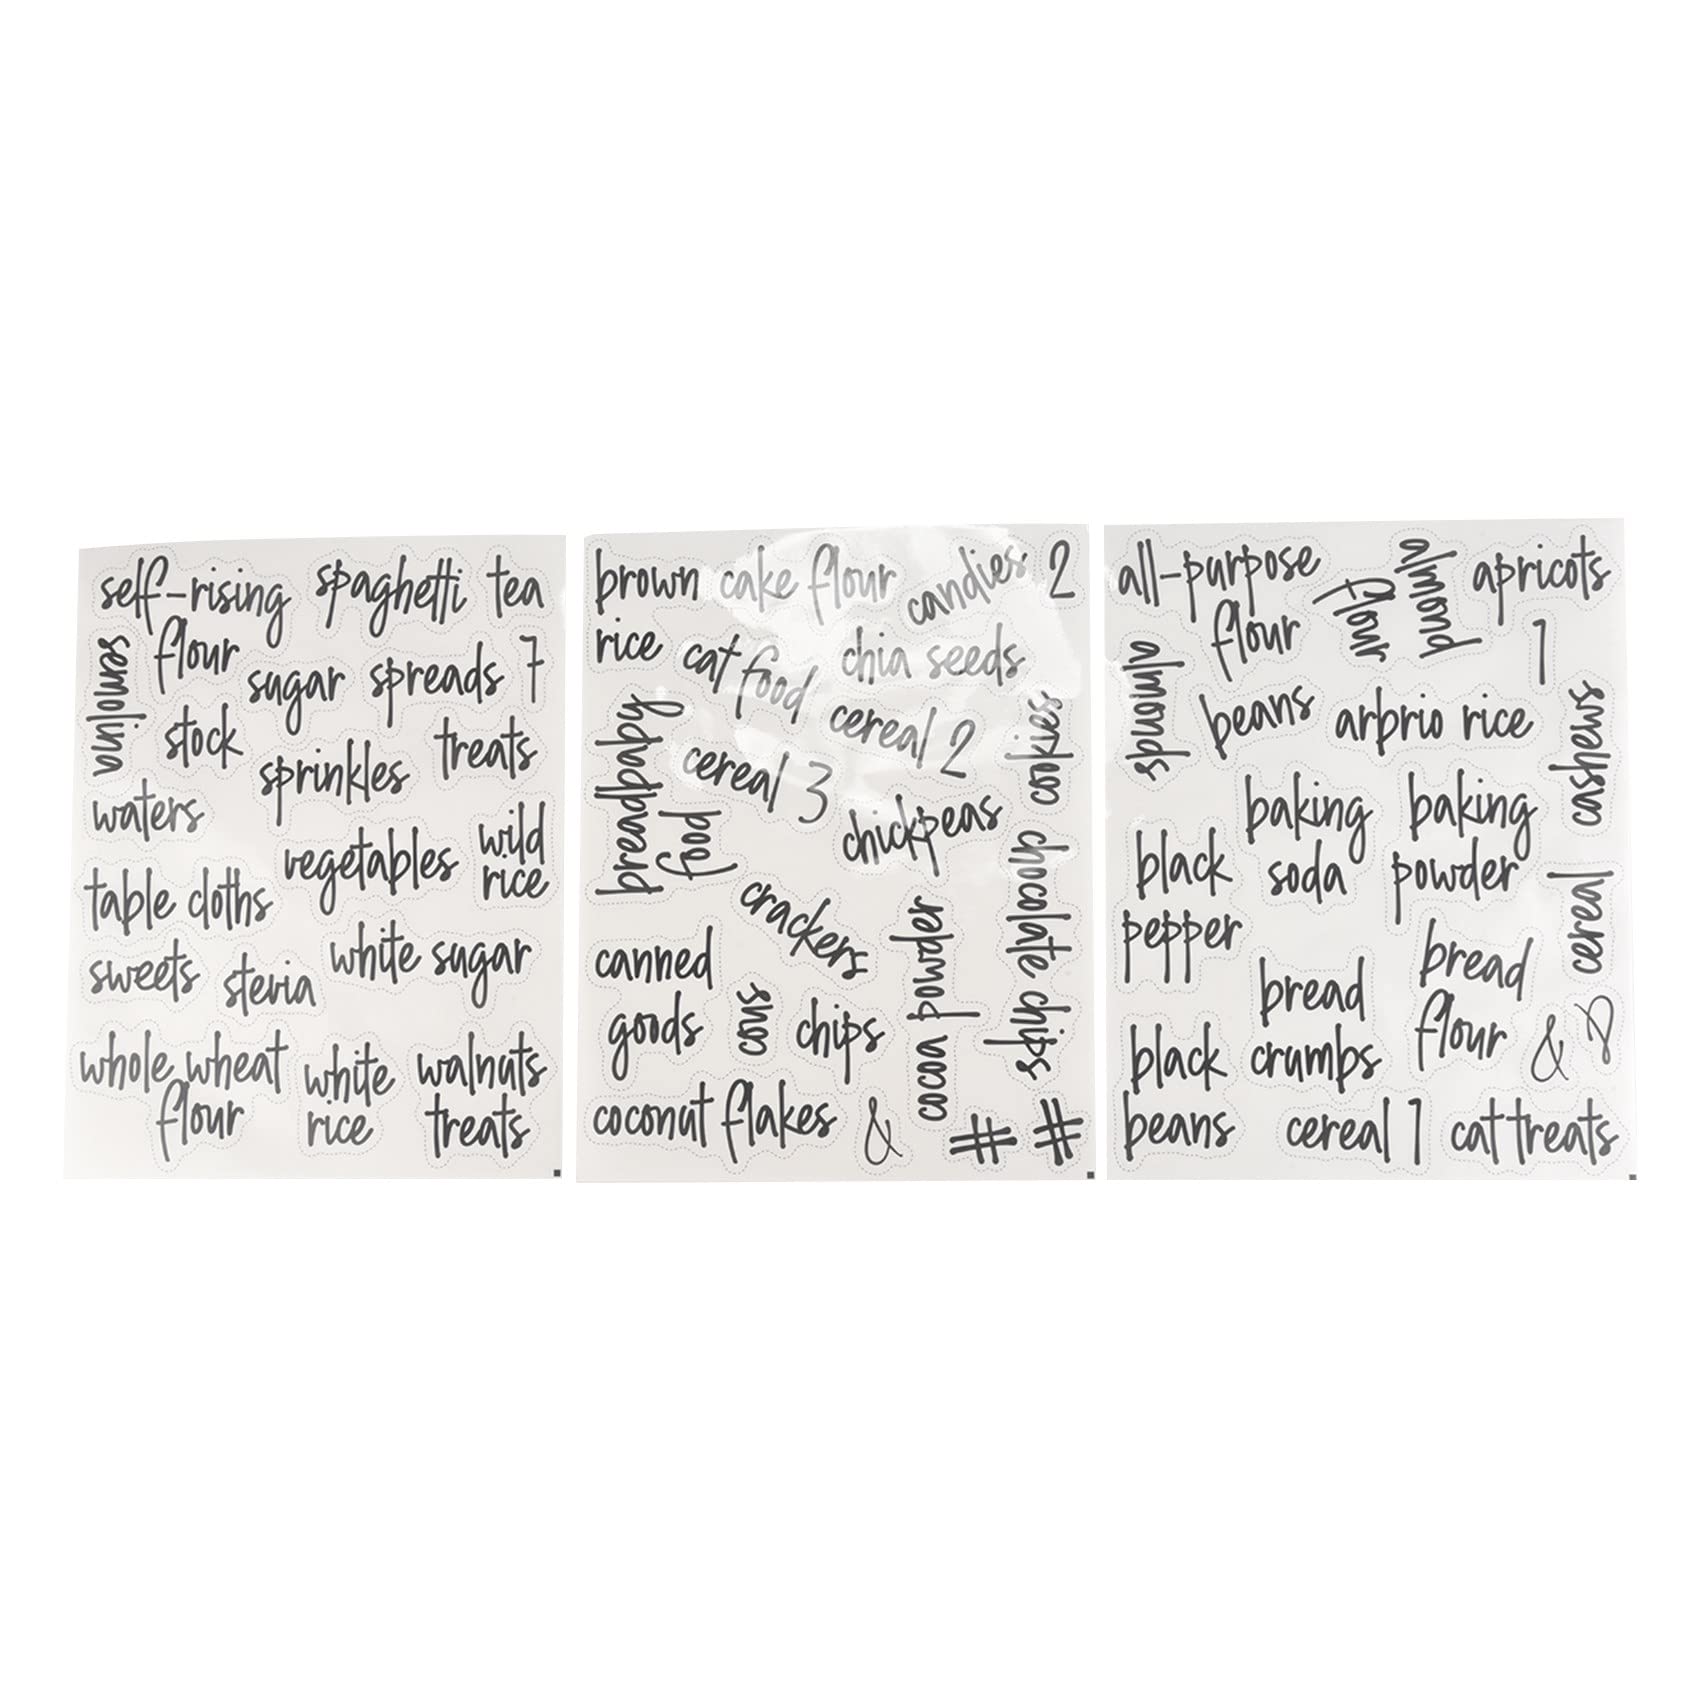 self-rising
flour
spaghetti
tea
semolina
sugar
spreads
7
stock
sprinkles
treats
waters
vegetables
wild
rice
table cloths
sweets
stevia
white sugar
whole wheat
flour
white
rice
walnuts
treats
brown
rice
cake flour
candies
2
cat food
chia seeds
breadpbaby
food
cereal 2
cereal 3
cookies
chickpeas
crackers
chocolate chips
canned
goods
cons
chips
cocoa powder
coconut flakes
&
#
#
all-purpose
flour
almond
flour
apricots
1
almonds
beans
arbrio rice
cashews
baking
soda
baking
powder
black
pepper
cereal
bread
crumbs
bread
flour
&
black
beans
cereal 1
cat treats